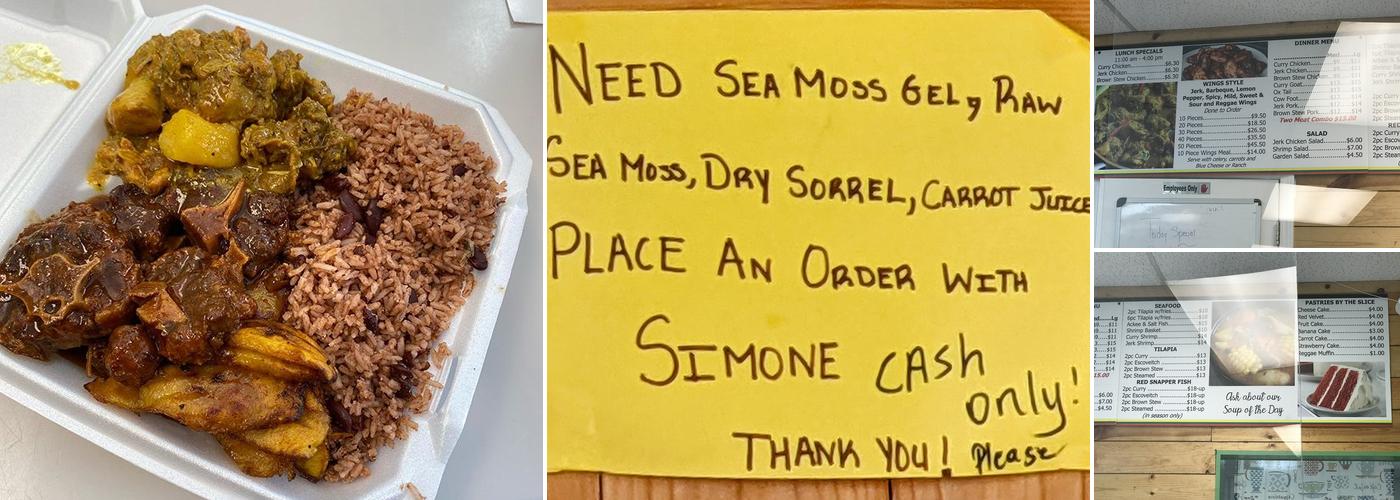 NEED SEA MOSS GEL, RAW
SEA MOSS, DRY SORREL, CARROT JUICE
PLACE AN ORDER WITH
SIMONE CASH
only!
THANK YOU! Please
LUNCH SPECIALS
11:00 am - 4:00 pm
Curry Chicken $6.30
Jerk Chicken $6.30
Brown Stew Chicken $6.30
WINGS STYLE
Jerk, Barbeque, Lemon
Pepper, Spicy, Mild, Sweet &
Sour and Reggae Wings
Done to Order
10 Pieces $9.50
20 Pieces $18.50
30 Pieces $26.50
40 Pieces $35.50
50 Pieces $45.50
10 Piece Wings Meal $14.00
Serve with celery, carrots and
Blue Cheese or Ranch
DINNER MENU
Curry Chicken
Jerk Chicken
Brown Stew
Curry Goat
Ox Tail
Cow Foot
Jerk Pork $14
Brown Stew Pork $14
Two Meat Combo $15.00
SALAD
Jerk Chicken Salad $6.00
Shrimp Salad $7.00
Garden Salad $4.50
Employees Only
Today Special
SEAFOOD
2pc Tilapia w/fries $10
6pc Tilapia w/fries
Ackee & Salt Fish
Shrimp Basket
Curry Shrimp
Jerk Shrimp
TILAPIA
2pc Curry $13
2pc Escoveitch $13
2pc Brown Stew $13
2pc Steamed $13
RED SNAPPER FISH
2pc Curry $18-up
2pc Escoveitch $18-up
2pc Brown Stew $18-up
2pc Steamed $18-up
(in season only)
Ask about our
Soup of the Day
PASTRIES BY THE SLICE
Cheese Cake $4.00
Red Velvet $4.00
Fruit Cake $4.00
Banana Cake $3.00
Carrot Cake $4.00
Strawberry Cake $4.00
Reggae Muffin $1.00